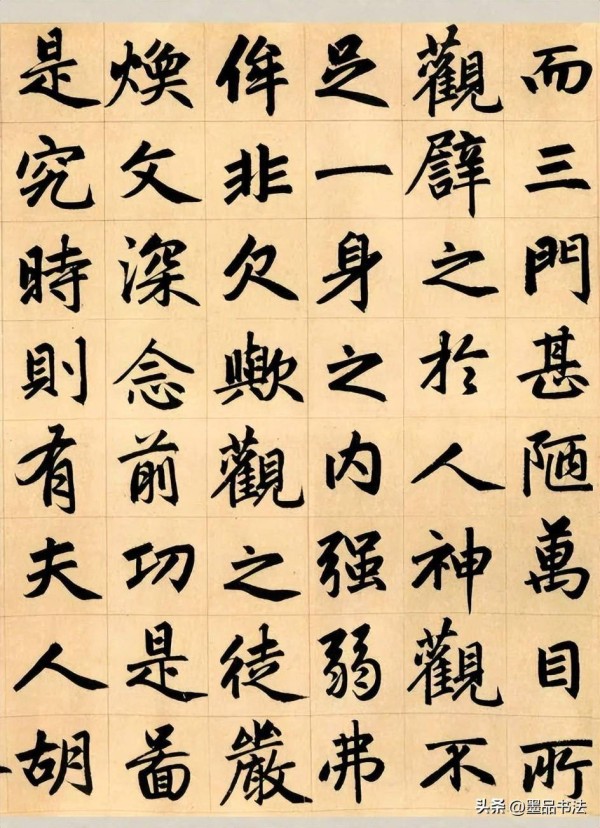 而三門甚陋萬目所
觀譬之於人神觀不
足一身之内强弱弗
侔非欠歟觀之徒嚴
煥文深念前功是啚
是究時則有夫人胡
头条 @墨品书法